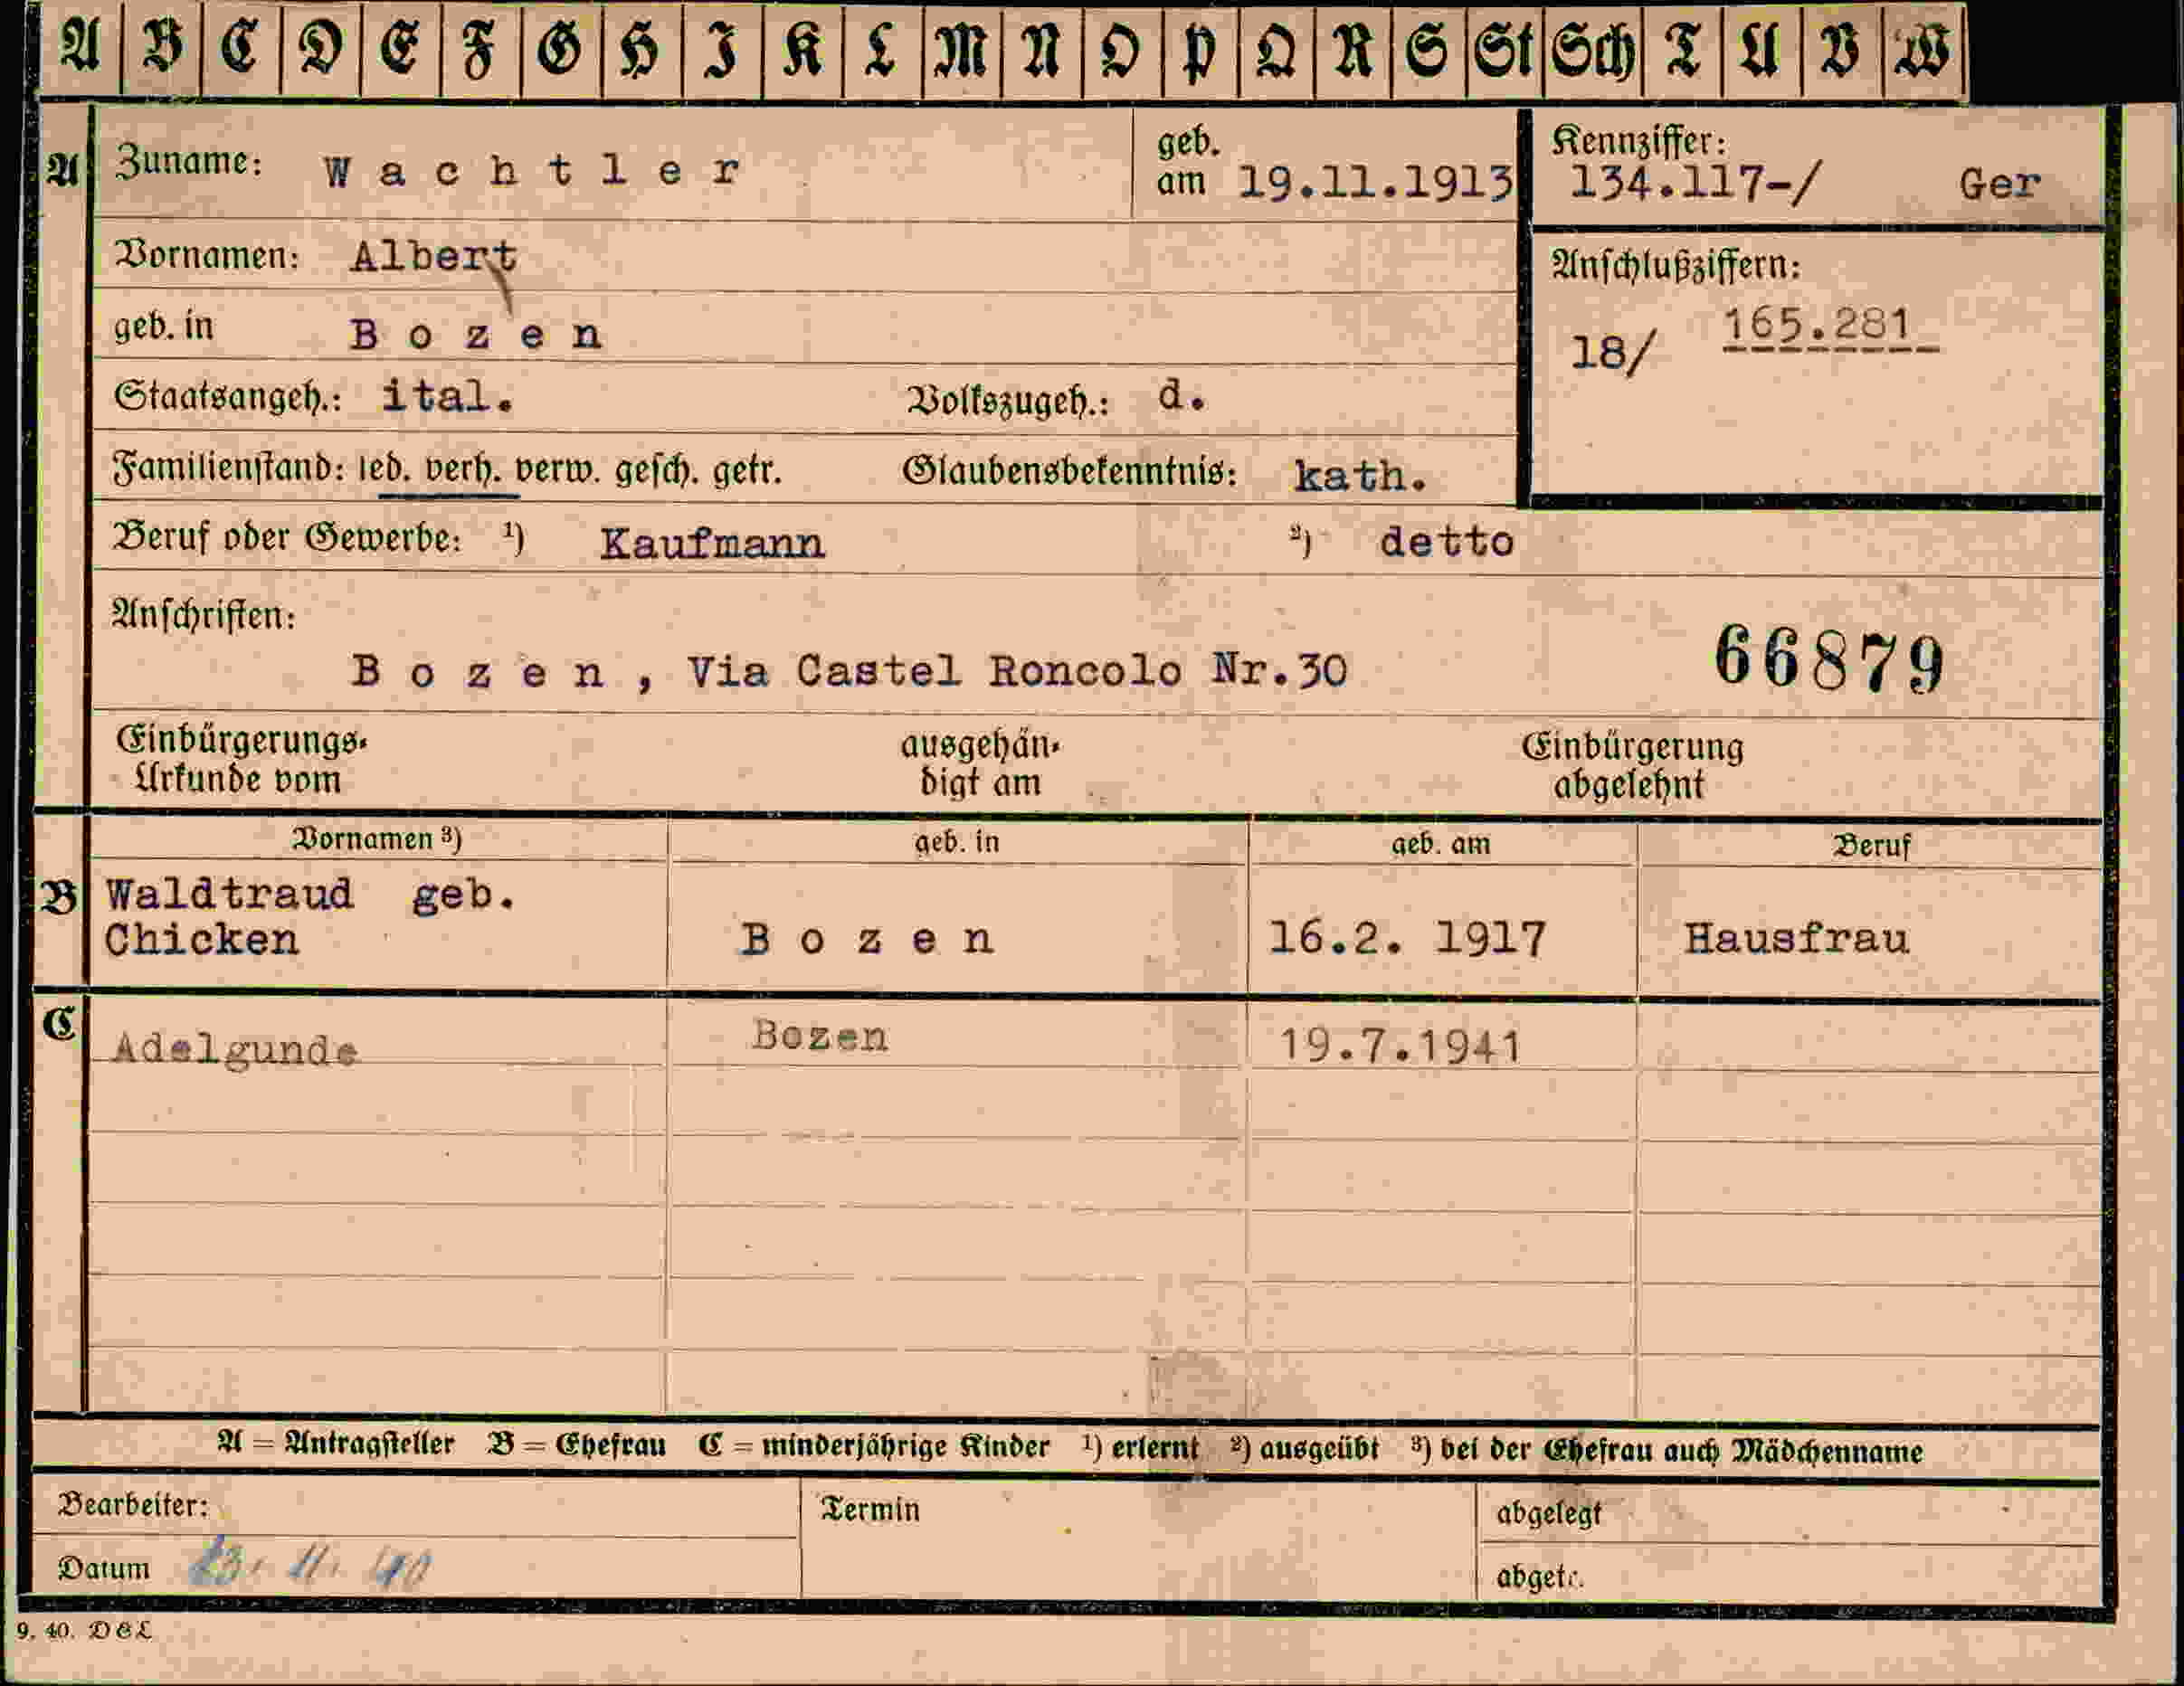 A B C D E F G H I K L M N O P Q R S St Sch T U V W
A Zuname: Wachtler geb. am 19.11.1913 Kennziffer: 134.117-/ Ger
Vornamen: Albert Anschlußziffern:
geb. in Bozen 18/ 165.281
Staatsangeh.: ital. Volkszugeh.: d.
Familienstand: led. verh. verw. gesch. getr. Glaubensbekenntnis: kath.
Beruf oder Gewerbe: ¹) Kaufmann ²) detto
Anschriften:
Bozen, Via Castel Roncolo Nr.30 66879
Einbürgerungs- ausgehän- Einbürgerung
Urkunde vom digt am abgelehnt
Vornamen ³) geb. in geb. am Beruf
B Waldtraud geb.
Chicken Bozen 16.2. 1917 Hausfrau
C Adelgunde Bozen 19.7.1941
A = Antragsteller B = Ehefrau C = minderjährige Kinder ¹) erlernt ²) ausgeübt ³) bei der Ehefrau auch Mädchenname
Bearbeiter: Termin abgelegt
Datum 23. 11. 40 abgetr.
9. 40. D&L